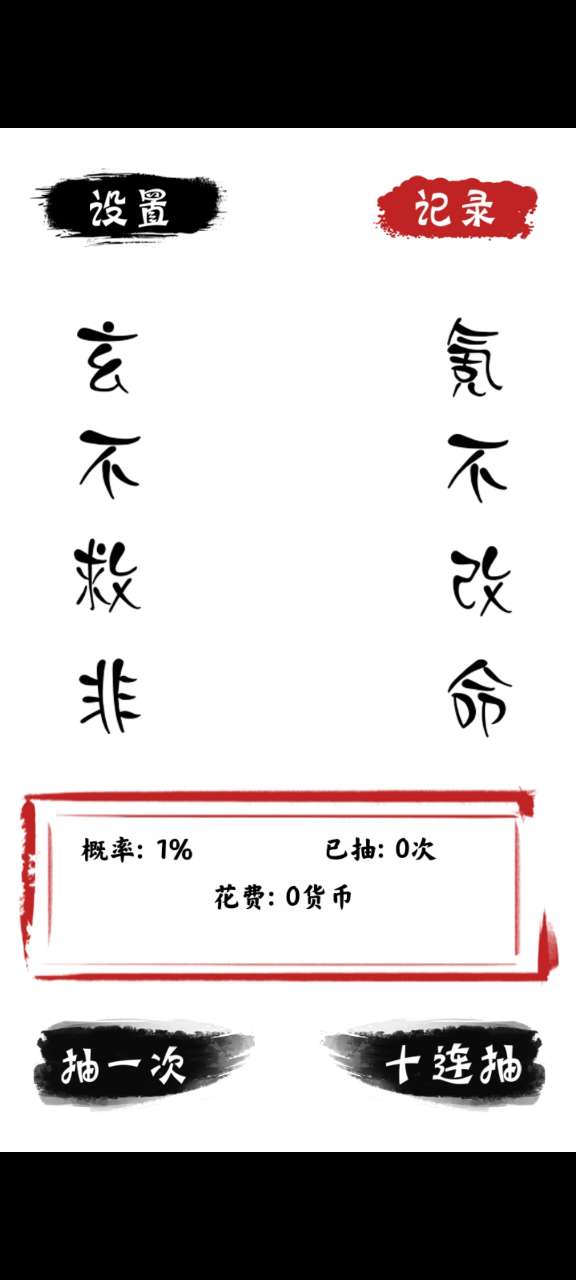 设置
记录
玄不救非
氪不改命
概率: 1%
已抽: 0次
花费: 0货币
抽一次
十连抽